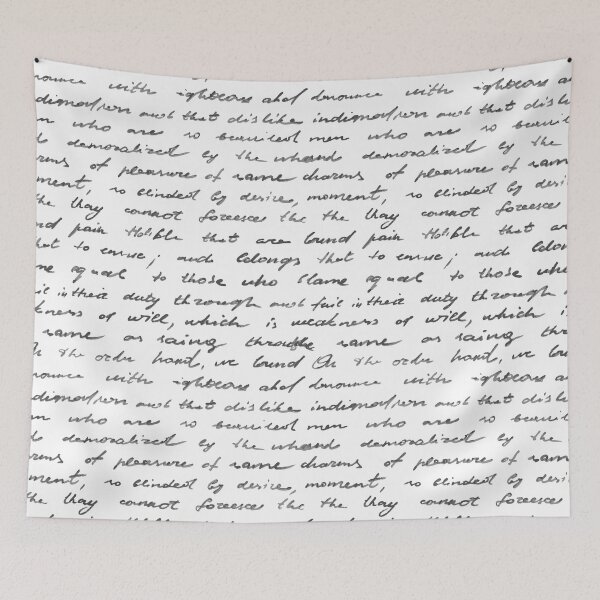 nounce with righteous ahd denounce with righteous a
ndignation and that dislike indignation and that dislik
n who are so men who are so
d demoralized by the demoralized by the
rms of pleasure of same charms of pleasure of sam
ment, so blinded by desire, moment, so blinded by desi
the they cannot foresee the the they cannot foresee
nd pain that are bound pain that ar
hat to ensue; and belongs that to ensue; and belong
me equal to those who blame equal to those who
ail in their duty through and fail in their duty through
kness of will, which is weakness of will, which
same as saing same as saing thro
On the order hand, we bound On the order hand, we bou
nounce with righteous ahd denounce with righteous a
ndignation and that dislike indignation and that dislik
n who are so men who are so
d demoralized by the demoralized by the
rms of pleasure of same charms of pleasure of sam
ment, so blinded by desire, moment, so blinded by desi
the they cannot foresee the the they cannot foresee